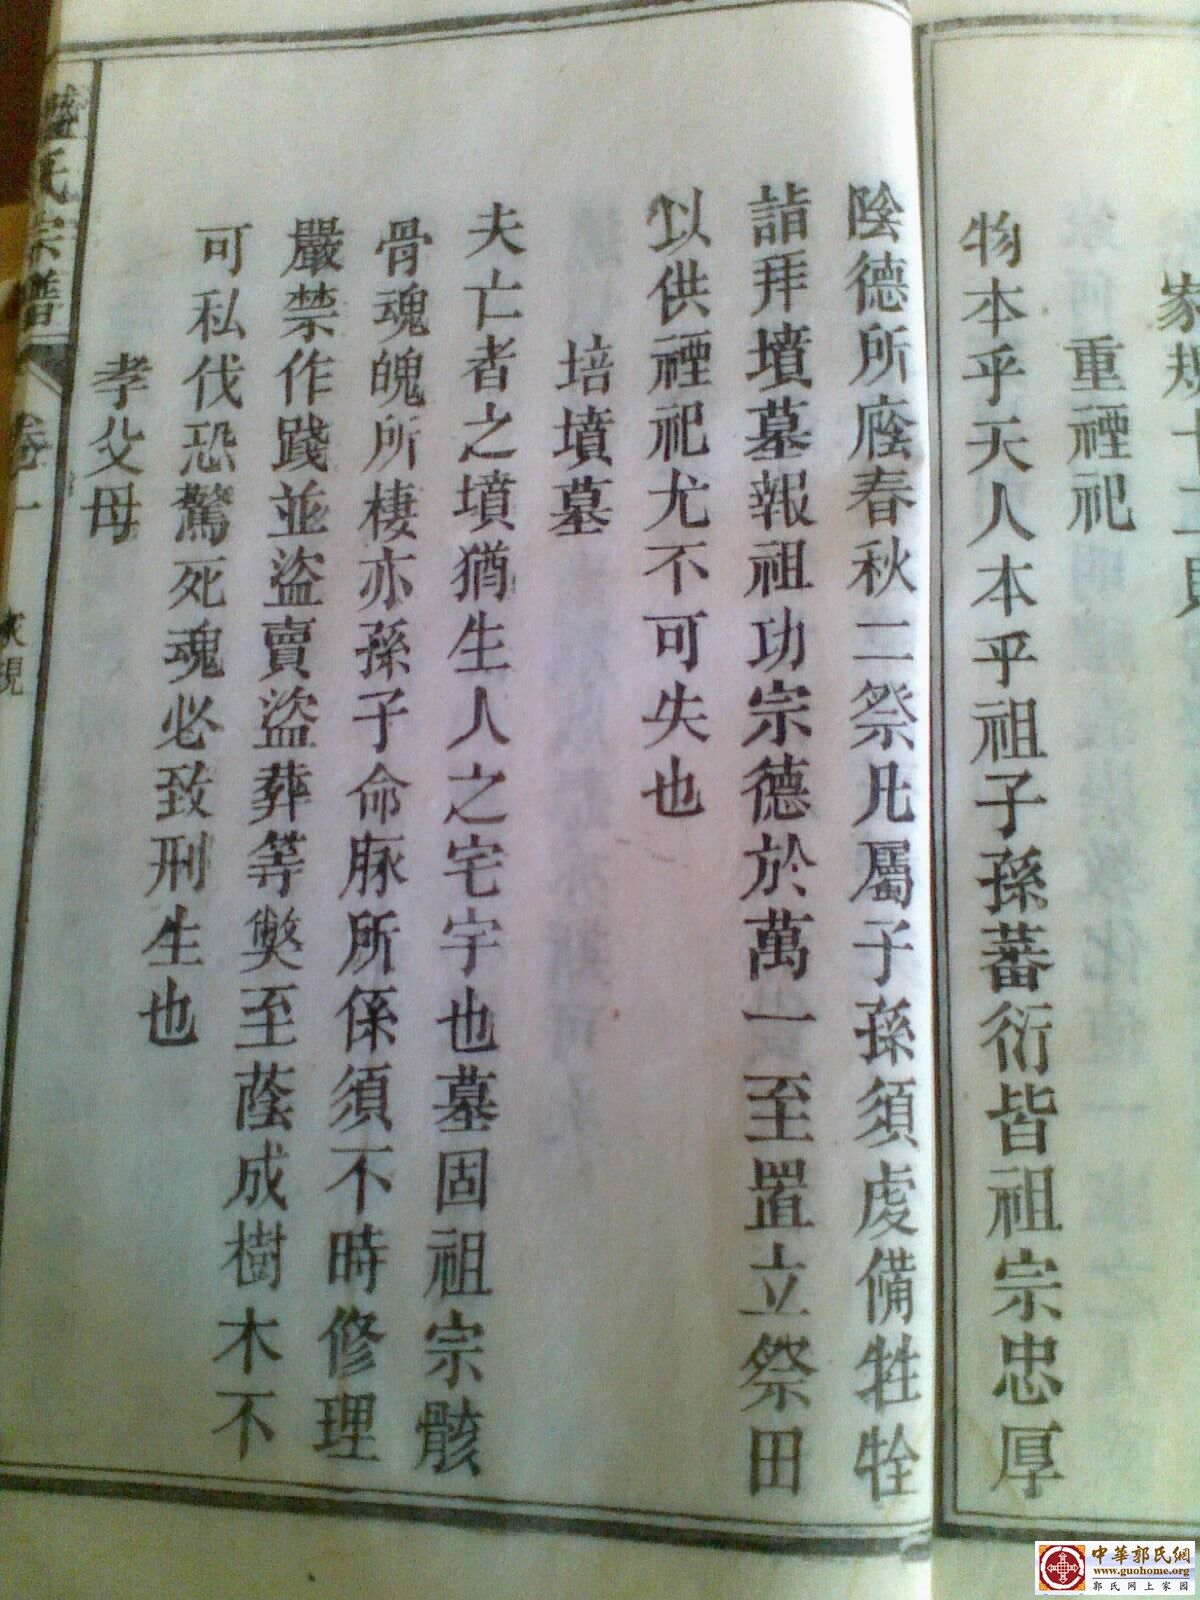 家規十二則
重禋祀
物本乎天人本乎祖子孫蕃衍皆祖宗忠厚
陰德所廕春秋二祭凡屬子孫須虔備牲牷
詣拜墳墓報祖功宗德於萬一至置立祭田
以供禋祀尤不可失也
培墳墓
夫亡者之墳猶生人之宅宇也墓固祖宗骸
骨魂魄所棲亦孫子命脉所係須不時修理
嚴禁作踐並盜賣盜葬等獘至蔭成樹木不
可私伐恐驚死魂必致刑生也
孝父母
氏宗譜
卷一
家規
中華郭氏網
www.guohome.org
郭氏网上家园